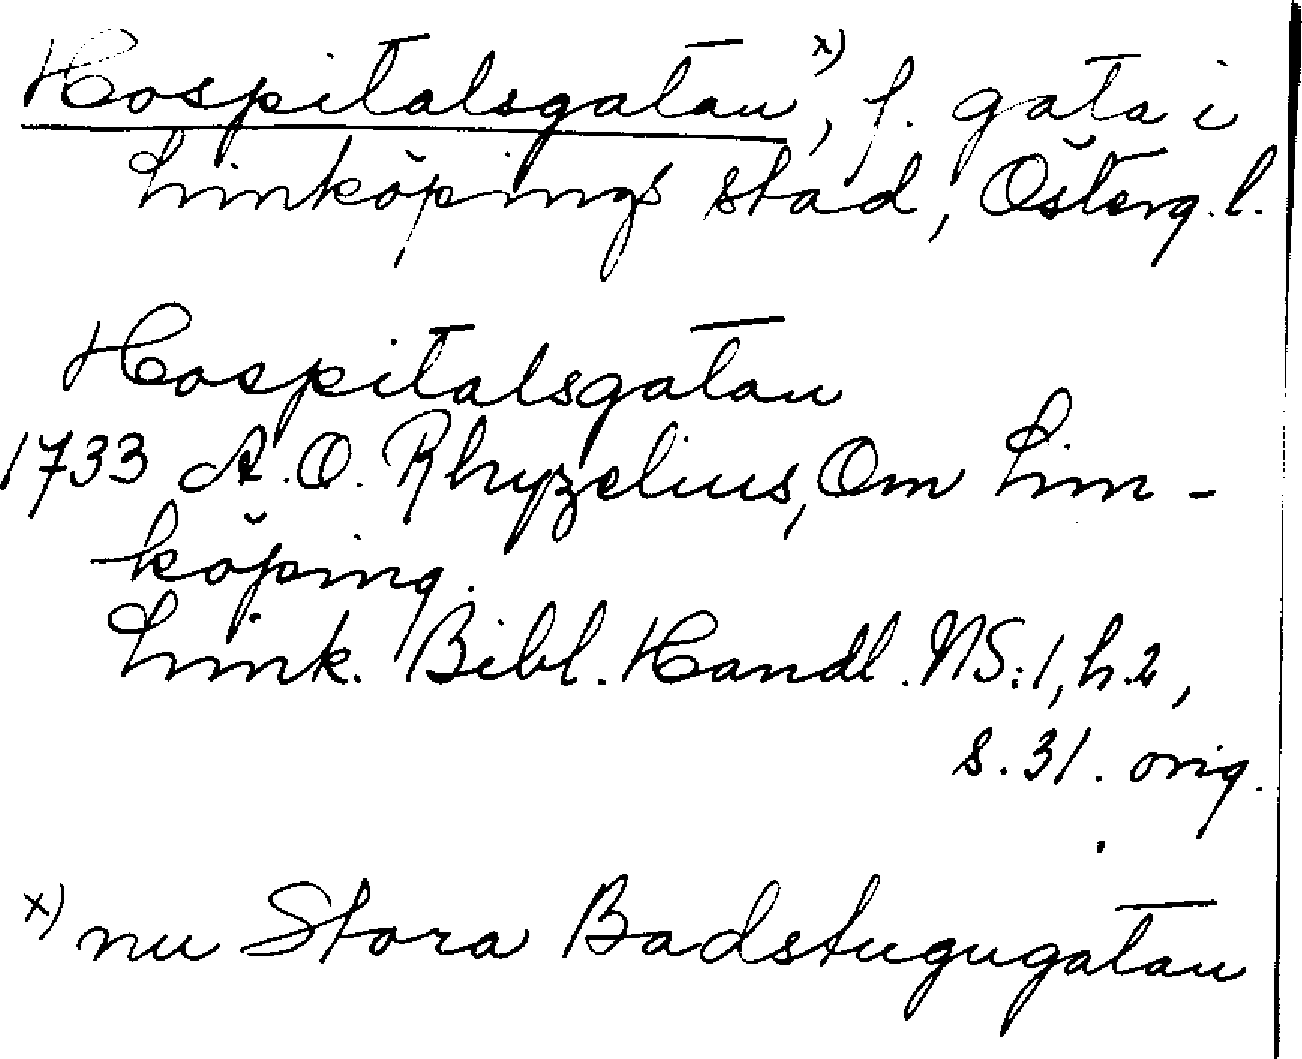 Hospitalsgatan x), f. gata i
Linköpings stad, Österg. l.
Hospitalsgatan
1733 A. O. Rhyzelius, Om Lin-
köping.
Link. Bibl. Handl. NS:1, h.2,
s. 31. orig.
x) nu Stora Badstugugatan